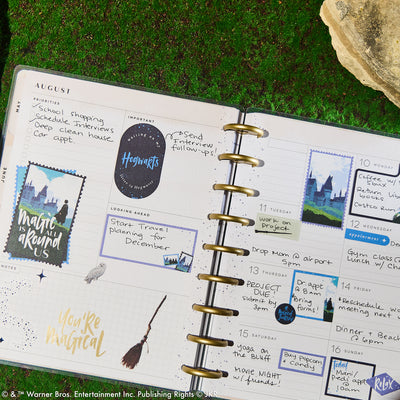 AUGUST
MAY
JUNE
PRIORITIES
School shopping
Schedule Interviews
Deep clean house
Car appt.
IMPORTANT
waiting on my
Hogwarts
letter to Hogwarts
Send
Interview
follow-ups!
Magic
IS ALL
aRound
US
LOOKING AHEAD
Start Travel
planning for
December
NOTES
You're
Magical
10 MONDAY
Coffee w/
Return
Costco Run
11 TUESDAY
work on
project
Drop Mom @ airport
5
12 WEDNESDAY
appointment
Gym class
Lunch w/
13 THURSDAY
PROJECT
DUE
submit by
3pm
Dr. appt
@ 8am
Bring
forms!
14 FRIDAY
Reschedule
meeting
Dinner + Beach
@ 6pm
15 SATURDAY
Yoga on
the Bluff
MOVIE NIGHT
w/ friends!
Buy popcorn
+ candy
16 SUNDAY
today
Mani/
Pedi appt
@ 10am
Relax
© & ™ Warner Bros. Entertainment Inc. Publishing Rights © JKR